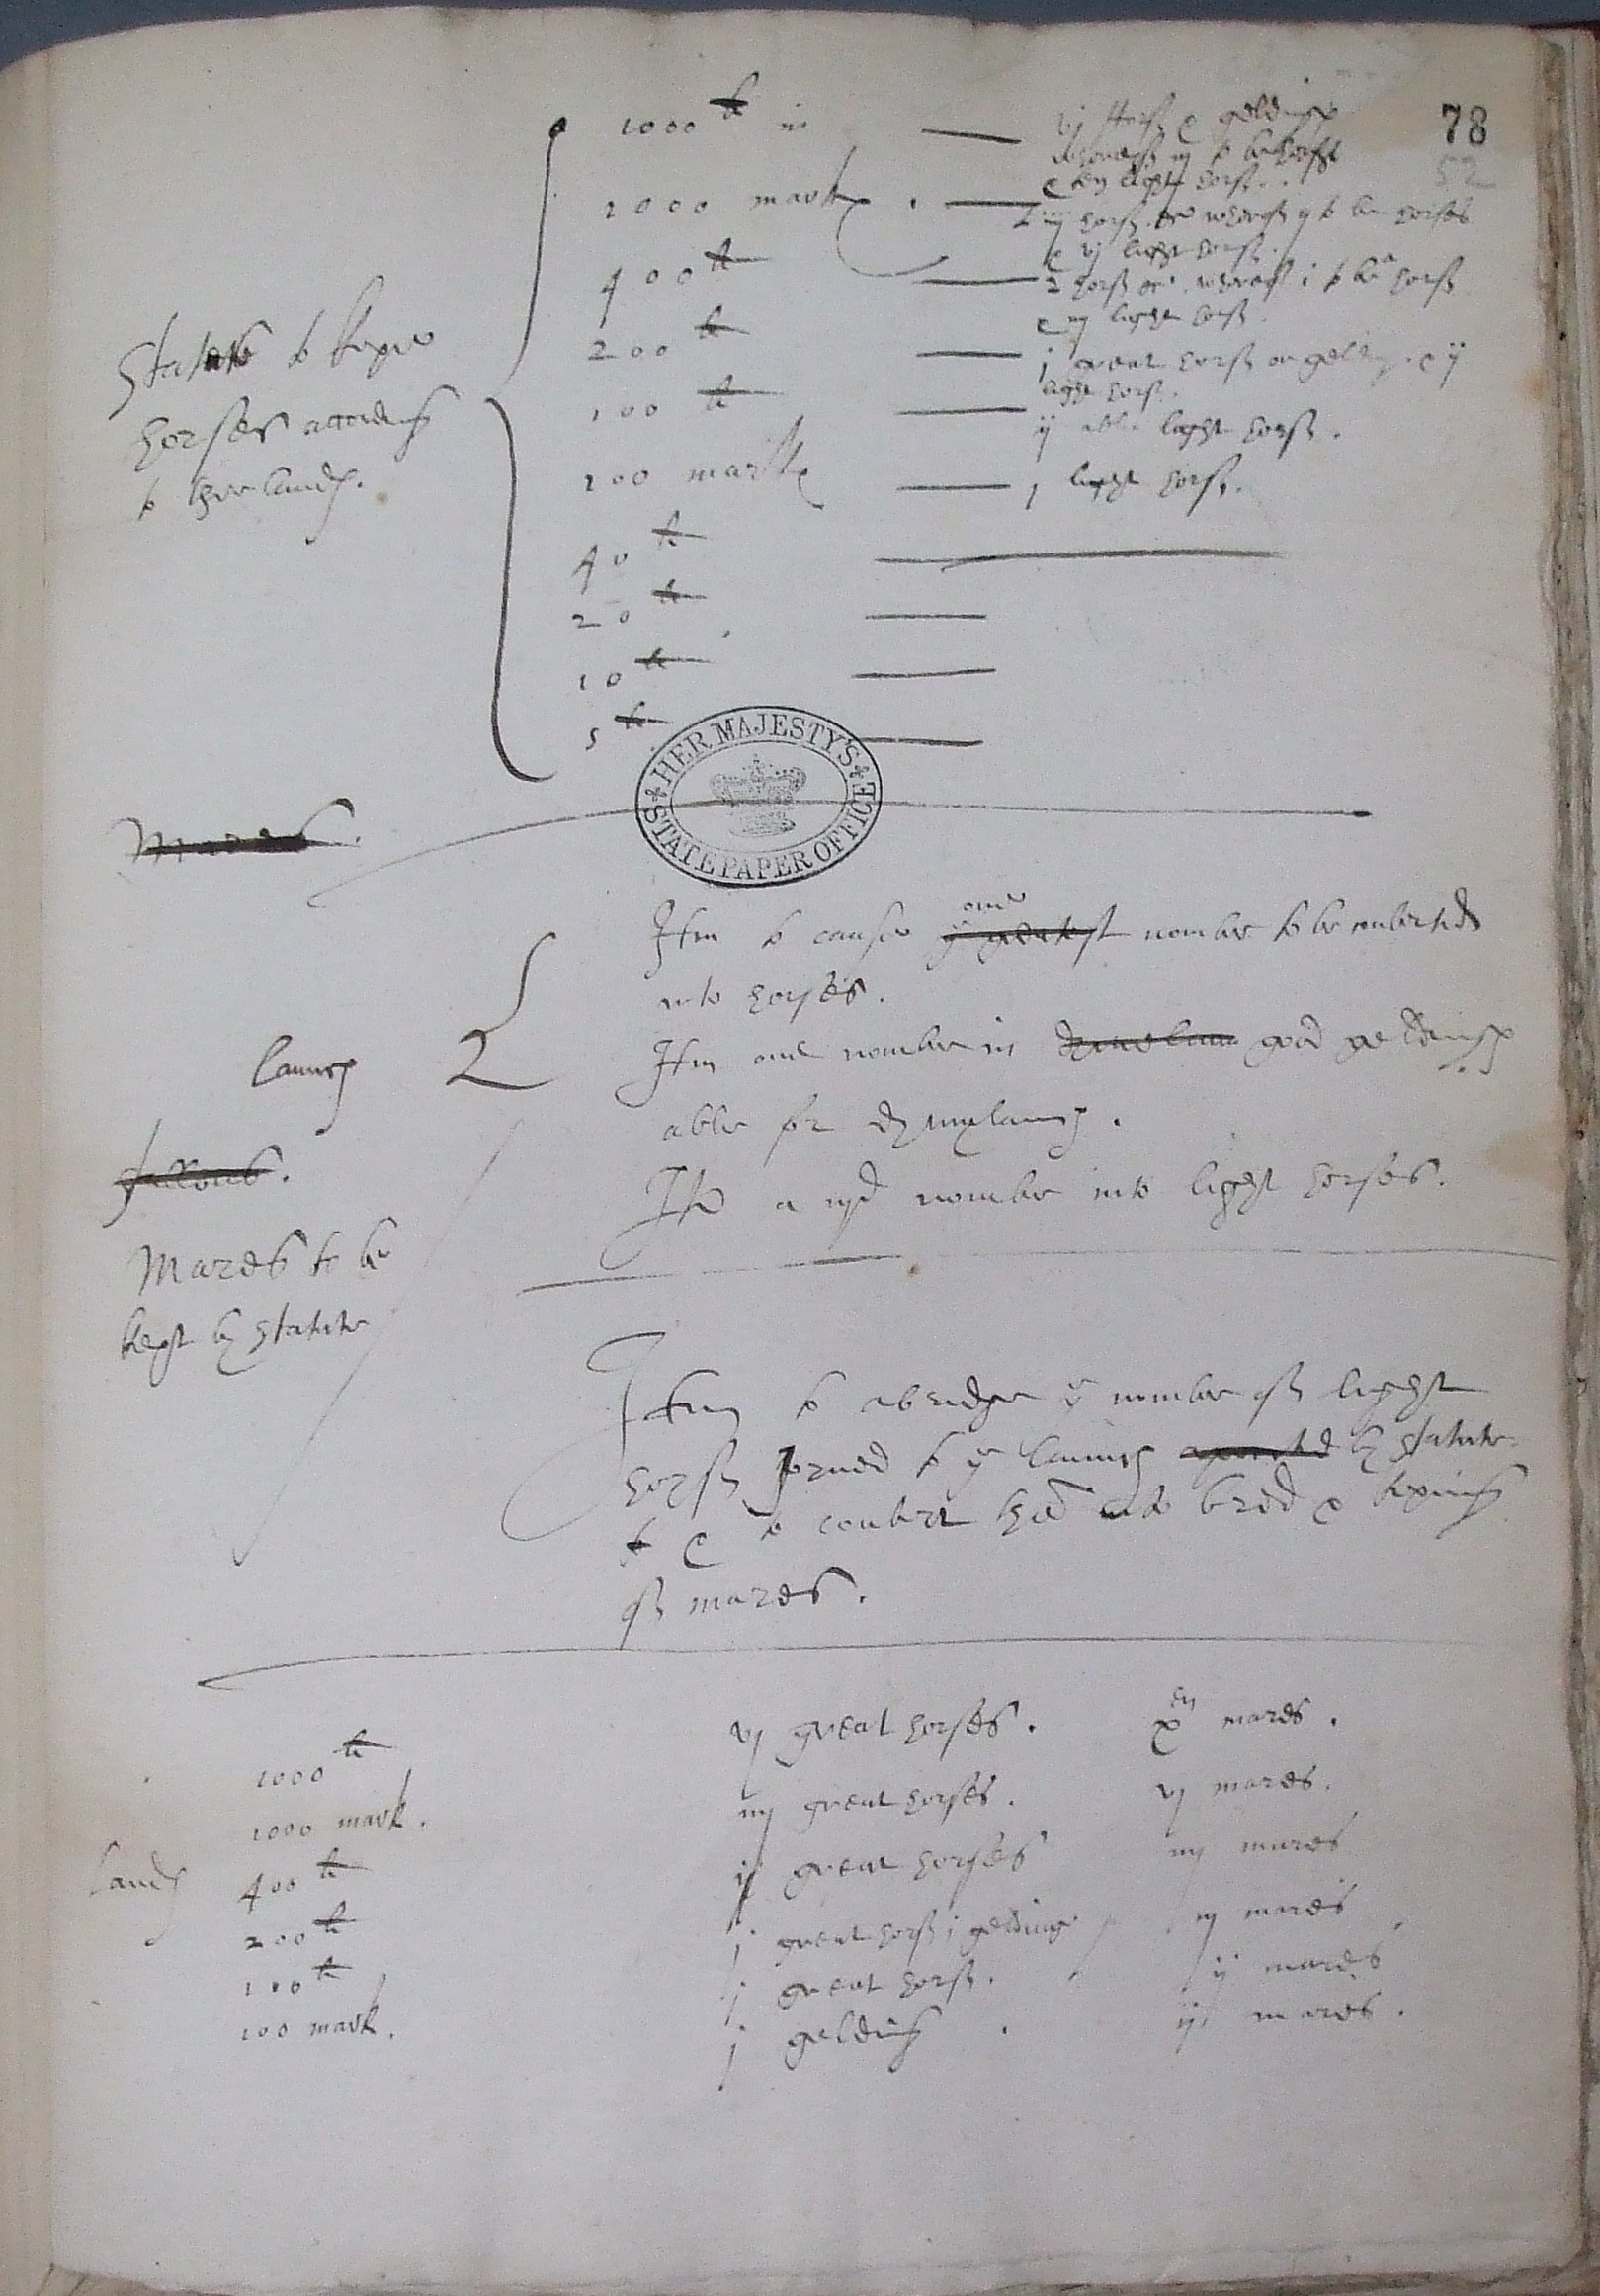 78
52
1000 li in
vj horse & geldings
wherof iij to be horse
& ten light horse
1000 markes
iiij horse wherof ij to be horses
& vj light horse
400 li
2 horse wherof i to be a horse
& iij light horse
200 li
j great horse or gelding & ij
light horse
100 li
ij able light horse.
100 markes
j light horse.
40 li
20 li
10 li
5 li
Statutes to kepe
horses according
to ther landes.
HER MAJESTY'S STATE PAPER OFFICE
Mares.
one
Item to cause ye greatest nomber to be converted
into horses.
launces
Item one nomber in good geldings
able for dymylaunces.
Stallons.
Item a iijd nomber into light horses.
Mares to be
kept by statute
Item to abridge ye nomber of light
horse joyned to ye launces by statute
to & to convert them into bred & keping
of mares.
1000 li vj great horses. x mares.
1000 mark. iiij great horses. vj mares.
Landes 400 li ij great horses iiij mares
200 li j great horse j gelding iij mares
100 li j great horse. ij mares
100 mark. j gelding. ij mares.